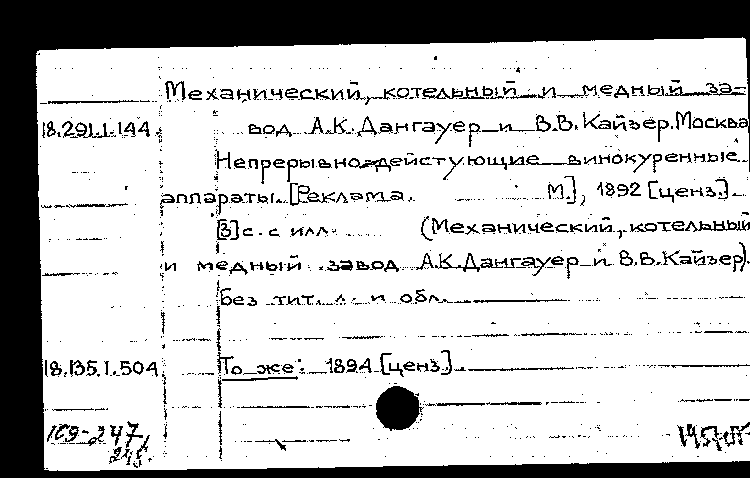 Механический, котельный и медный за=
18.291.1.144. вод А.К.Дангауер и В.В.Кайзер.Москва
Непрерывно-действующие винокуренные
аппараты. [Реклама. М.], 1892 [ценз.]
[3]с. с илл. (Механический, котельный
и медный завод А.К.Дангауер и В.В.Кайзер).
Без тит. л. и обл.
18.135.1.504 То же: 1894 [ценз.].
169-247,
245.